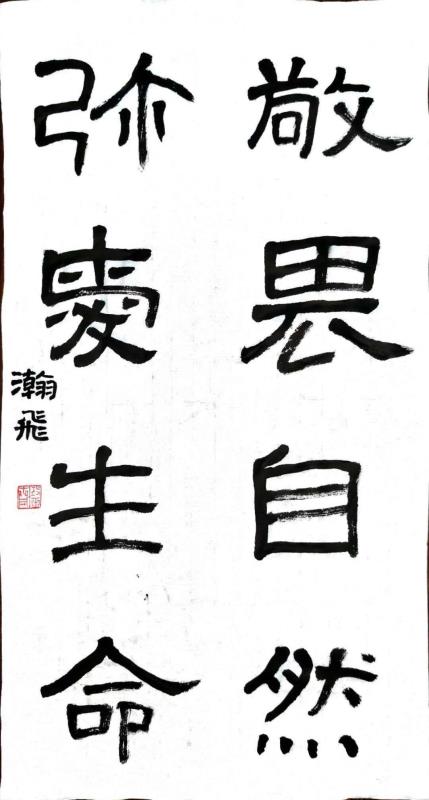 敬畏自然
弥愛生命
瀚飛